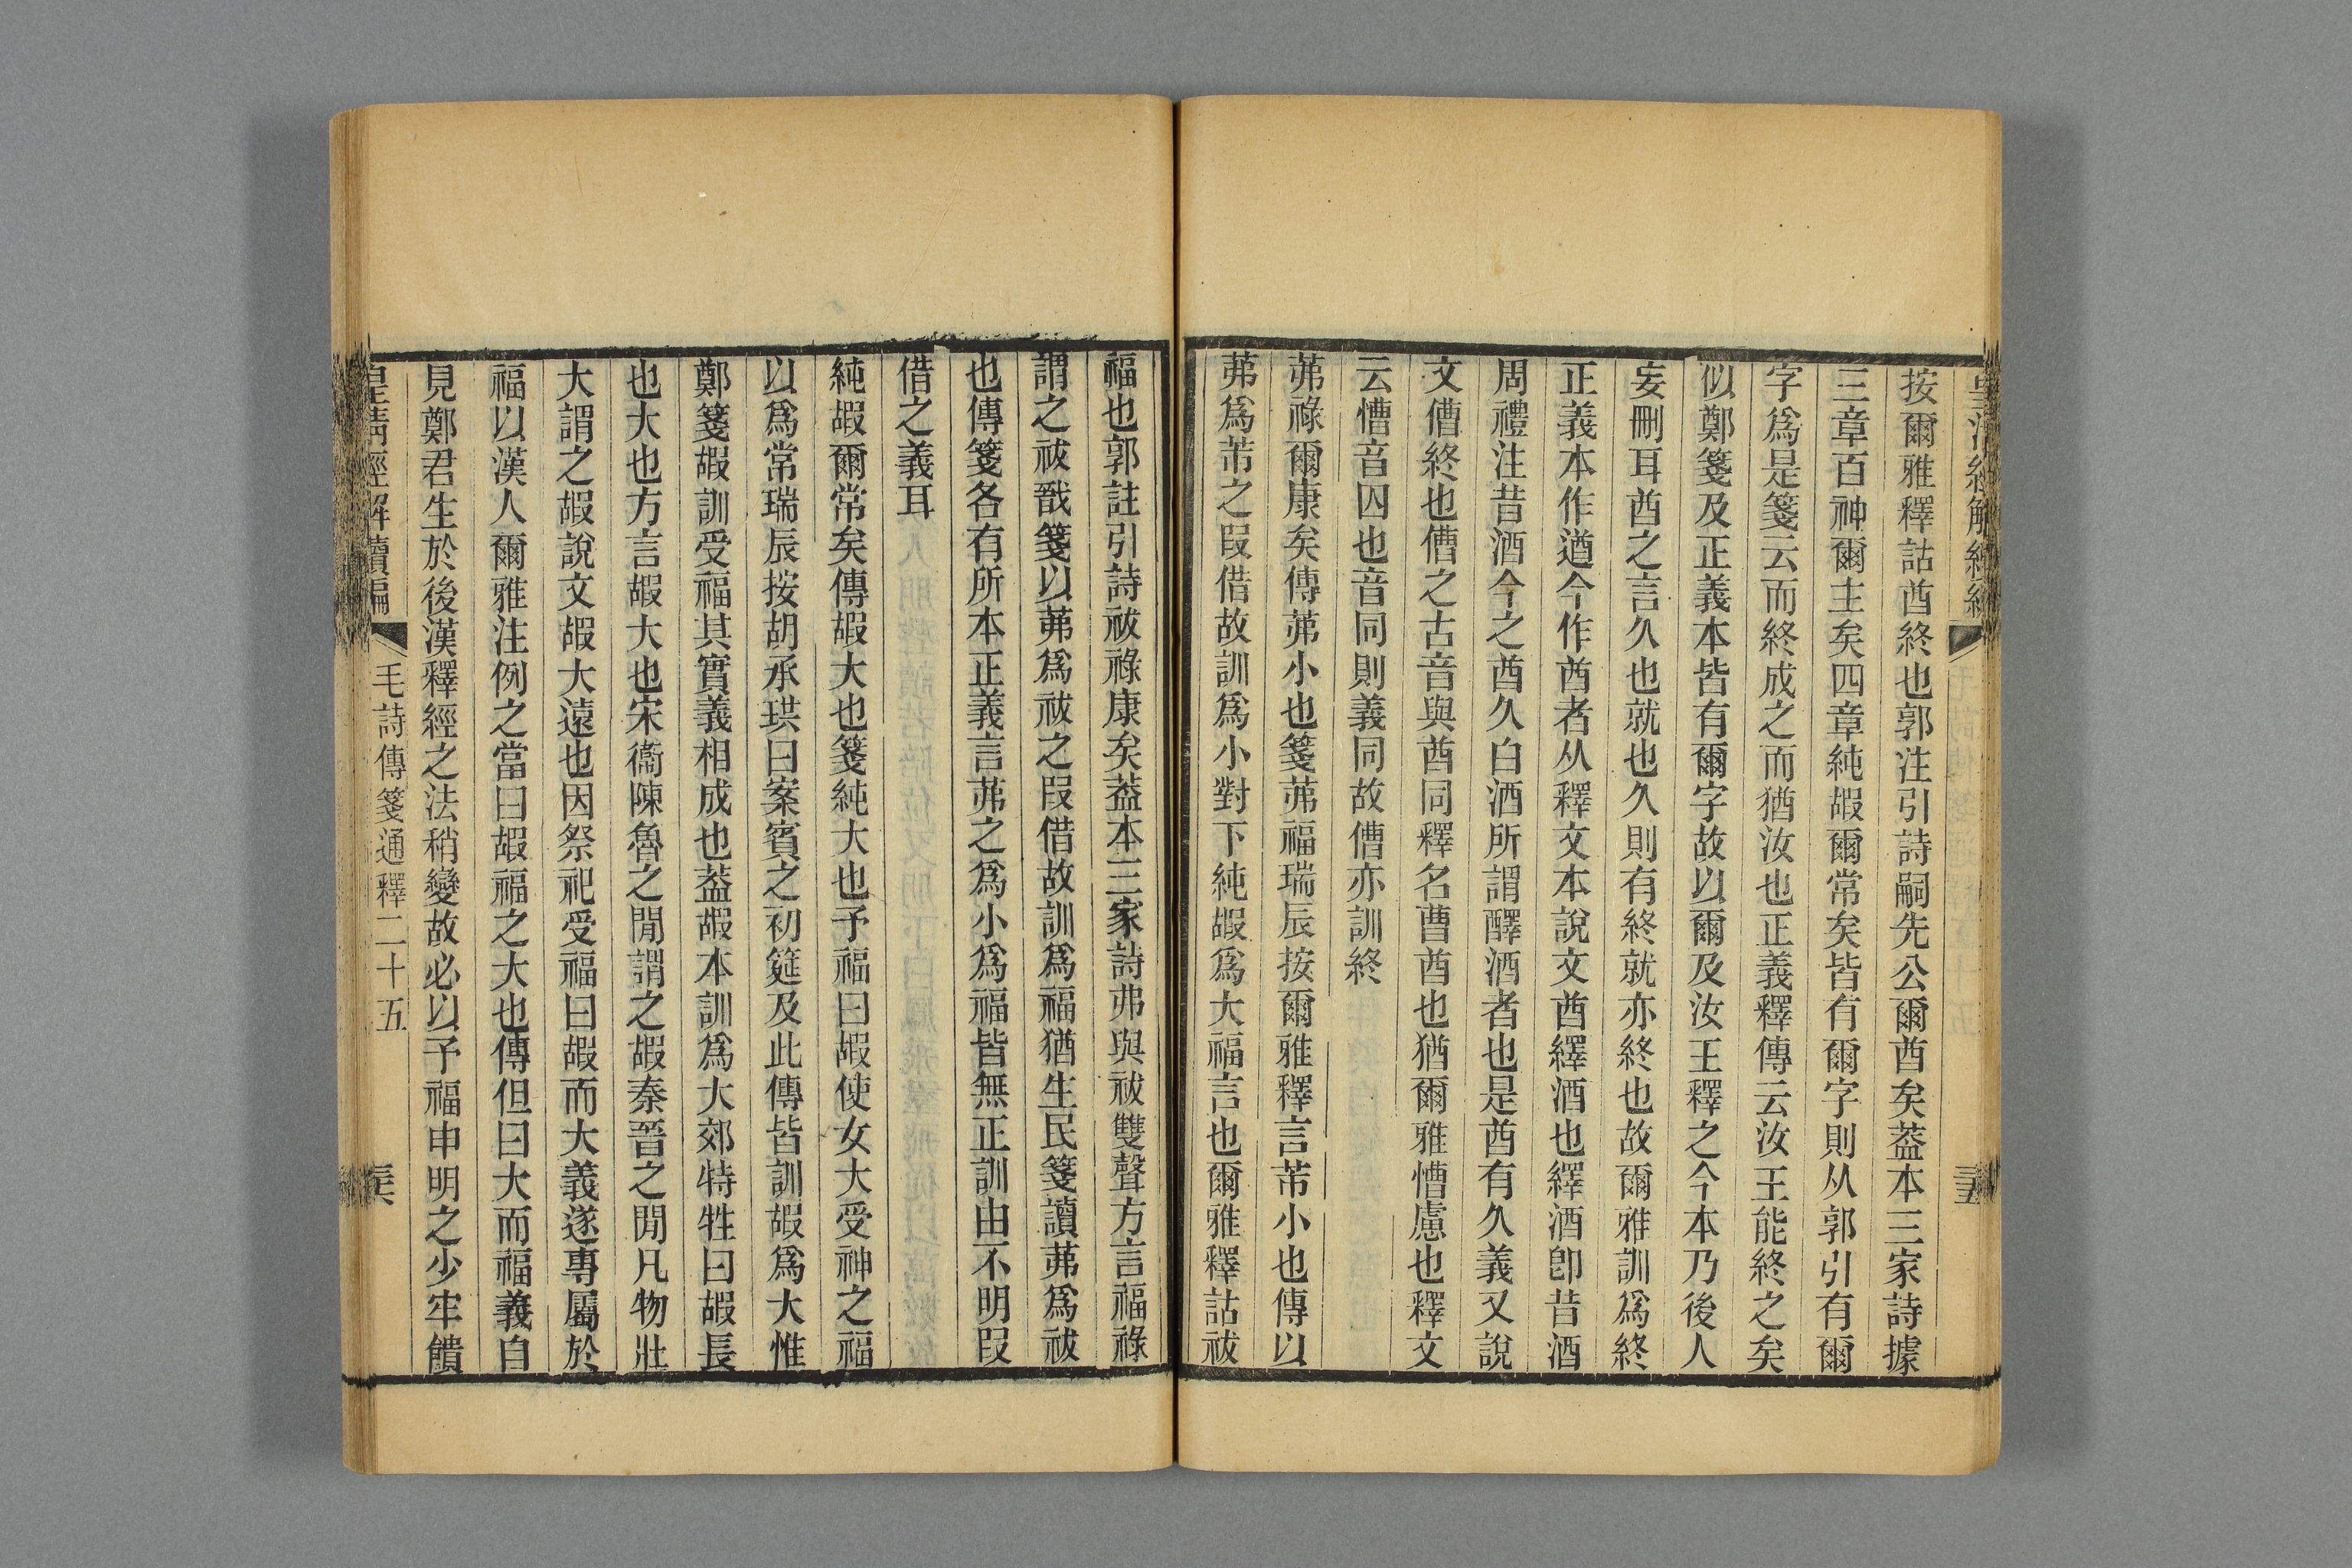 按爾雅釋詁酋終也郭注引詩嗣先公爾酋矣葢本三家詩據
三章百神爾主矣四章純嘏爾常矣皆有爾字則从郭引有爾
字爲是箋云而終成之而猶汝也正義釋傳云汝王能終之矣
似鄭箋及正義本皆有爾字故以爾及汝王釋之今本乃後人
妄刪耳酋之言久也就也久則有終就亦終也故爾雅訓爲終
正義本作遒今作酋者从釋文本說文酋繹酒也繹酒卽昔酒
周禮注昔酒今之酋久白酒所謂醳酒者也是酋有久義又說
文傮終也傮之古音與酋同釋名曹酋也猶爾雅慒慮也釋文
云慒音囚也音同則義同故傮亦訓終
茀祿爾康矣傳茀小也箋茀福瑞辰按爾雅釋言芾小也傳以
茀爲芾之叚借故訓爲小對下純嘏爲大福言也爾雅釋詁祓
福也郭註引詩祓祿康矣葢本三家詩弗與祓雙聲方言福祿
謂之祓戩箋以茀爲祓之叚借故訓爲福猶生民箋讀茀爲祓
也傳箋各有所本正義言茀之爲小爲福皆無正訓由不明叚
借之義耳
純嘏爾常矣傳嘏大也箋純大也予福曰嘏使女大受神之福
以爲常瑞辰按胡承珙曰案賓之初筵及此傳皆訓嘏爲大惟
鄭箋嘏訓受福其實義相成也葢嘏本訓爲大郊特牲曰嘏長
也大也方言嘏大也宋衞陳魯之閒謂之嘏秦晉之閒凡物壯
大謂之嘏說文嘏大遠也因祭祀受福曰嘏而大義遂專屬於
福以漢人爾雅注例之當曰嘏福之大也傳但曰大而福義自
見鄭君生於後漢釋經之法稍變故必以予福申明之少牢饋
皇清經解續編
毛詩傳箋通釋二十五